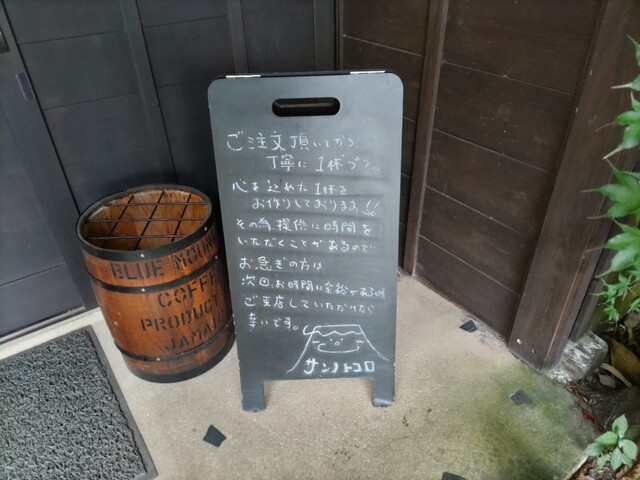 ご注文頂いてから、
丁寧に1杯づつ。
心を込めた1杯を
お作りしております!!
その為、提供に時間を
いただくことがあるので
お急ぎの方は
次回、お時間に余裕がある時
ご来店していただけたら
幸いです。
サンノトコロ
BLUE MOUN
COFFE
PRODUCT
JAMAI